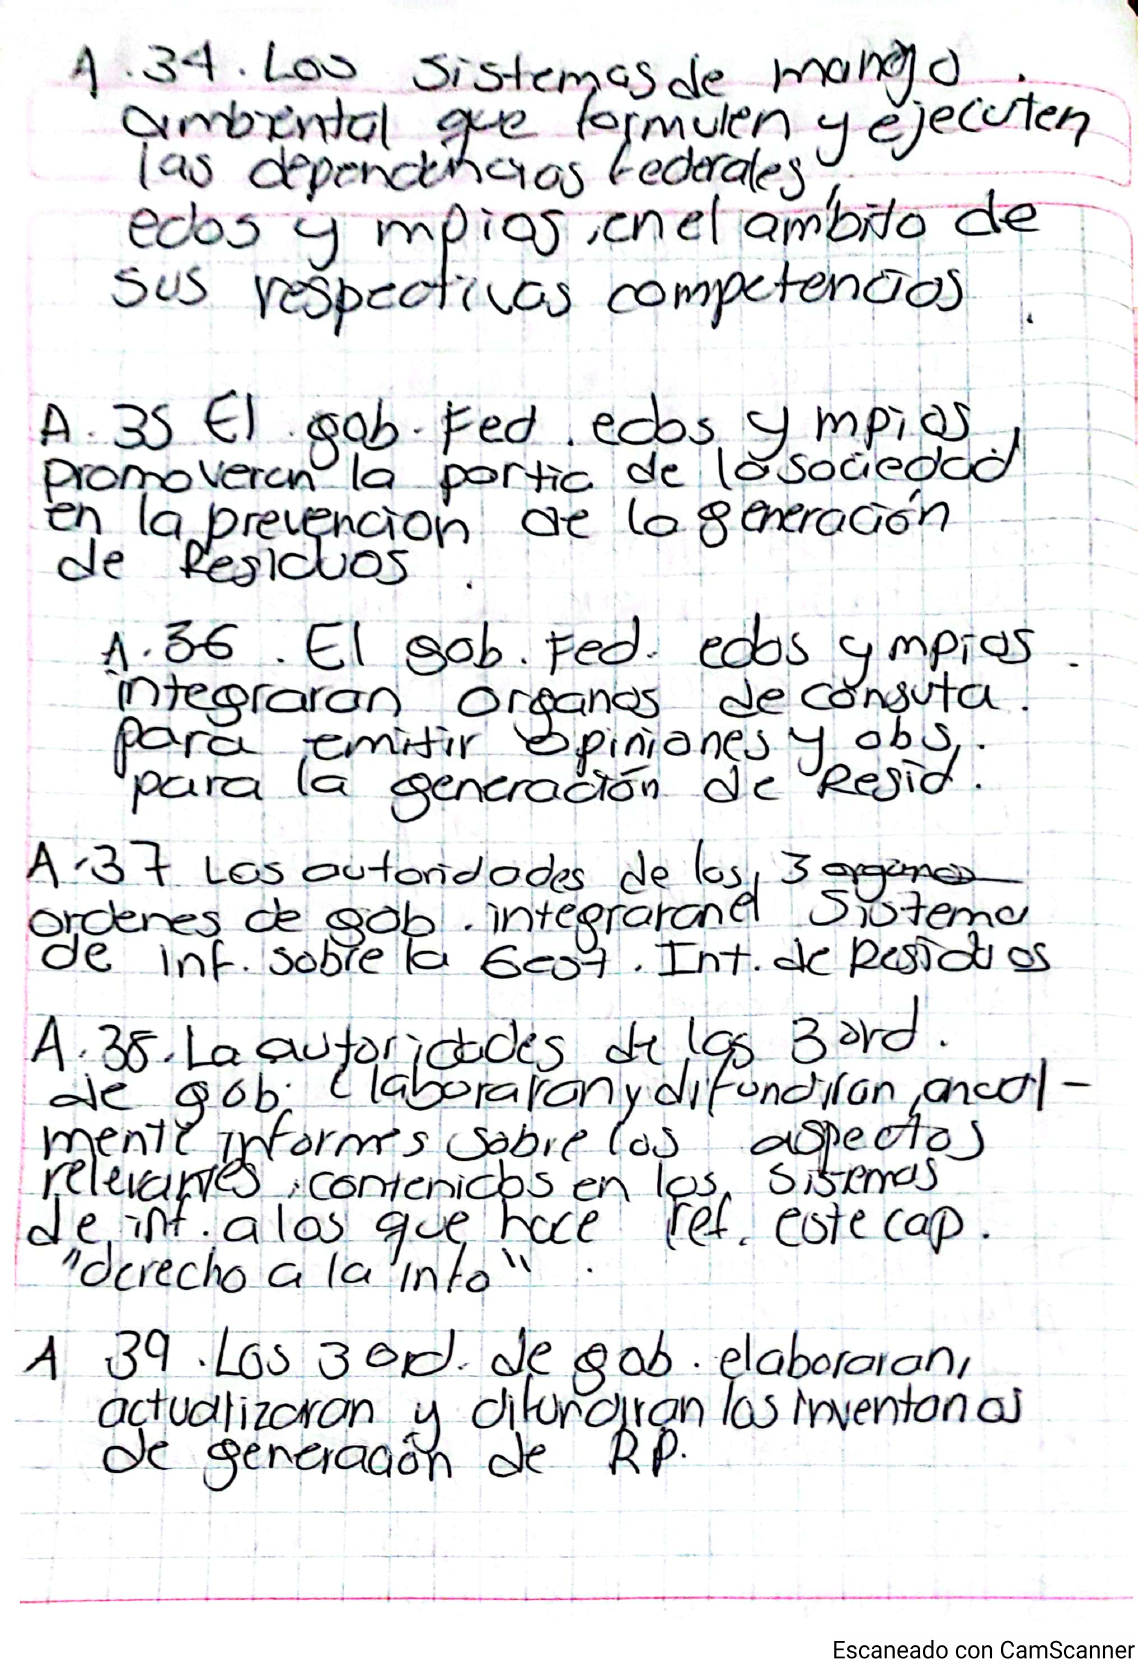 A.34. Los sistemas de manejo.
ambiental que formulen y ejecuten
las dependencias Federales,
edos y mpios, en el ambito de
sus respectivas competencias.
A. 35 El gob. Fed. edos y mpios,
promoveran la partic de la sociedad
en la prevencion de la generación
de Residuos.
A.36. El gob. Fed. edos y mpios.
integraran organos de consuta.
para emitir opiniones y obs,.
para la generación de Resid.
A.37 Las autoridades de los, 3 organos
ordenes de gob. integraran el Sistema
de inf. sobre la Gest. Int. de Residuos
A.38. La autoridades de los 3 ord.
de gob. elaboraran y difundiran, anual-
mente informes sobre los aspectos
relevantes, contenidos en los, sistemas
de, inf. a los que hace ref. este cap.
"derecho a la info".
A 39. Los 3 ord. de gob. elaboraran,
actualizaran y difundiran los inventarios
de generación de RP.
Escaneado con CamScanner